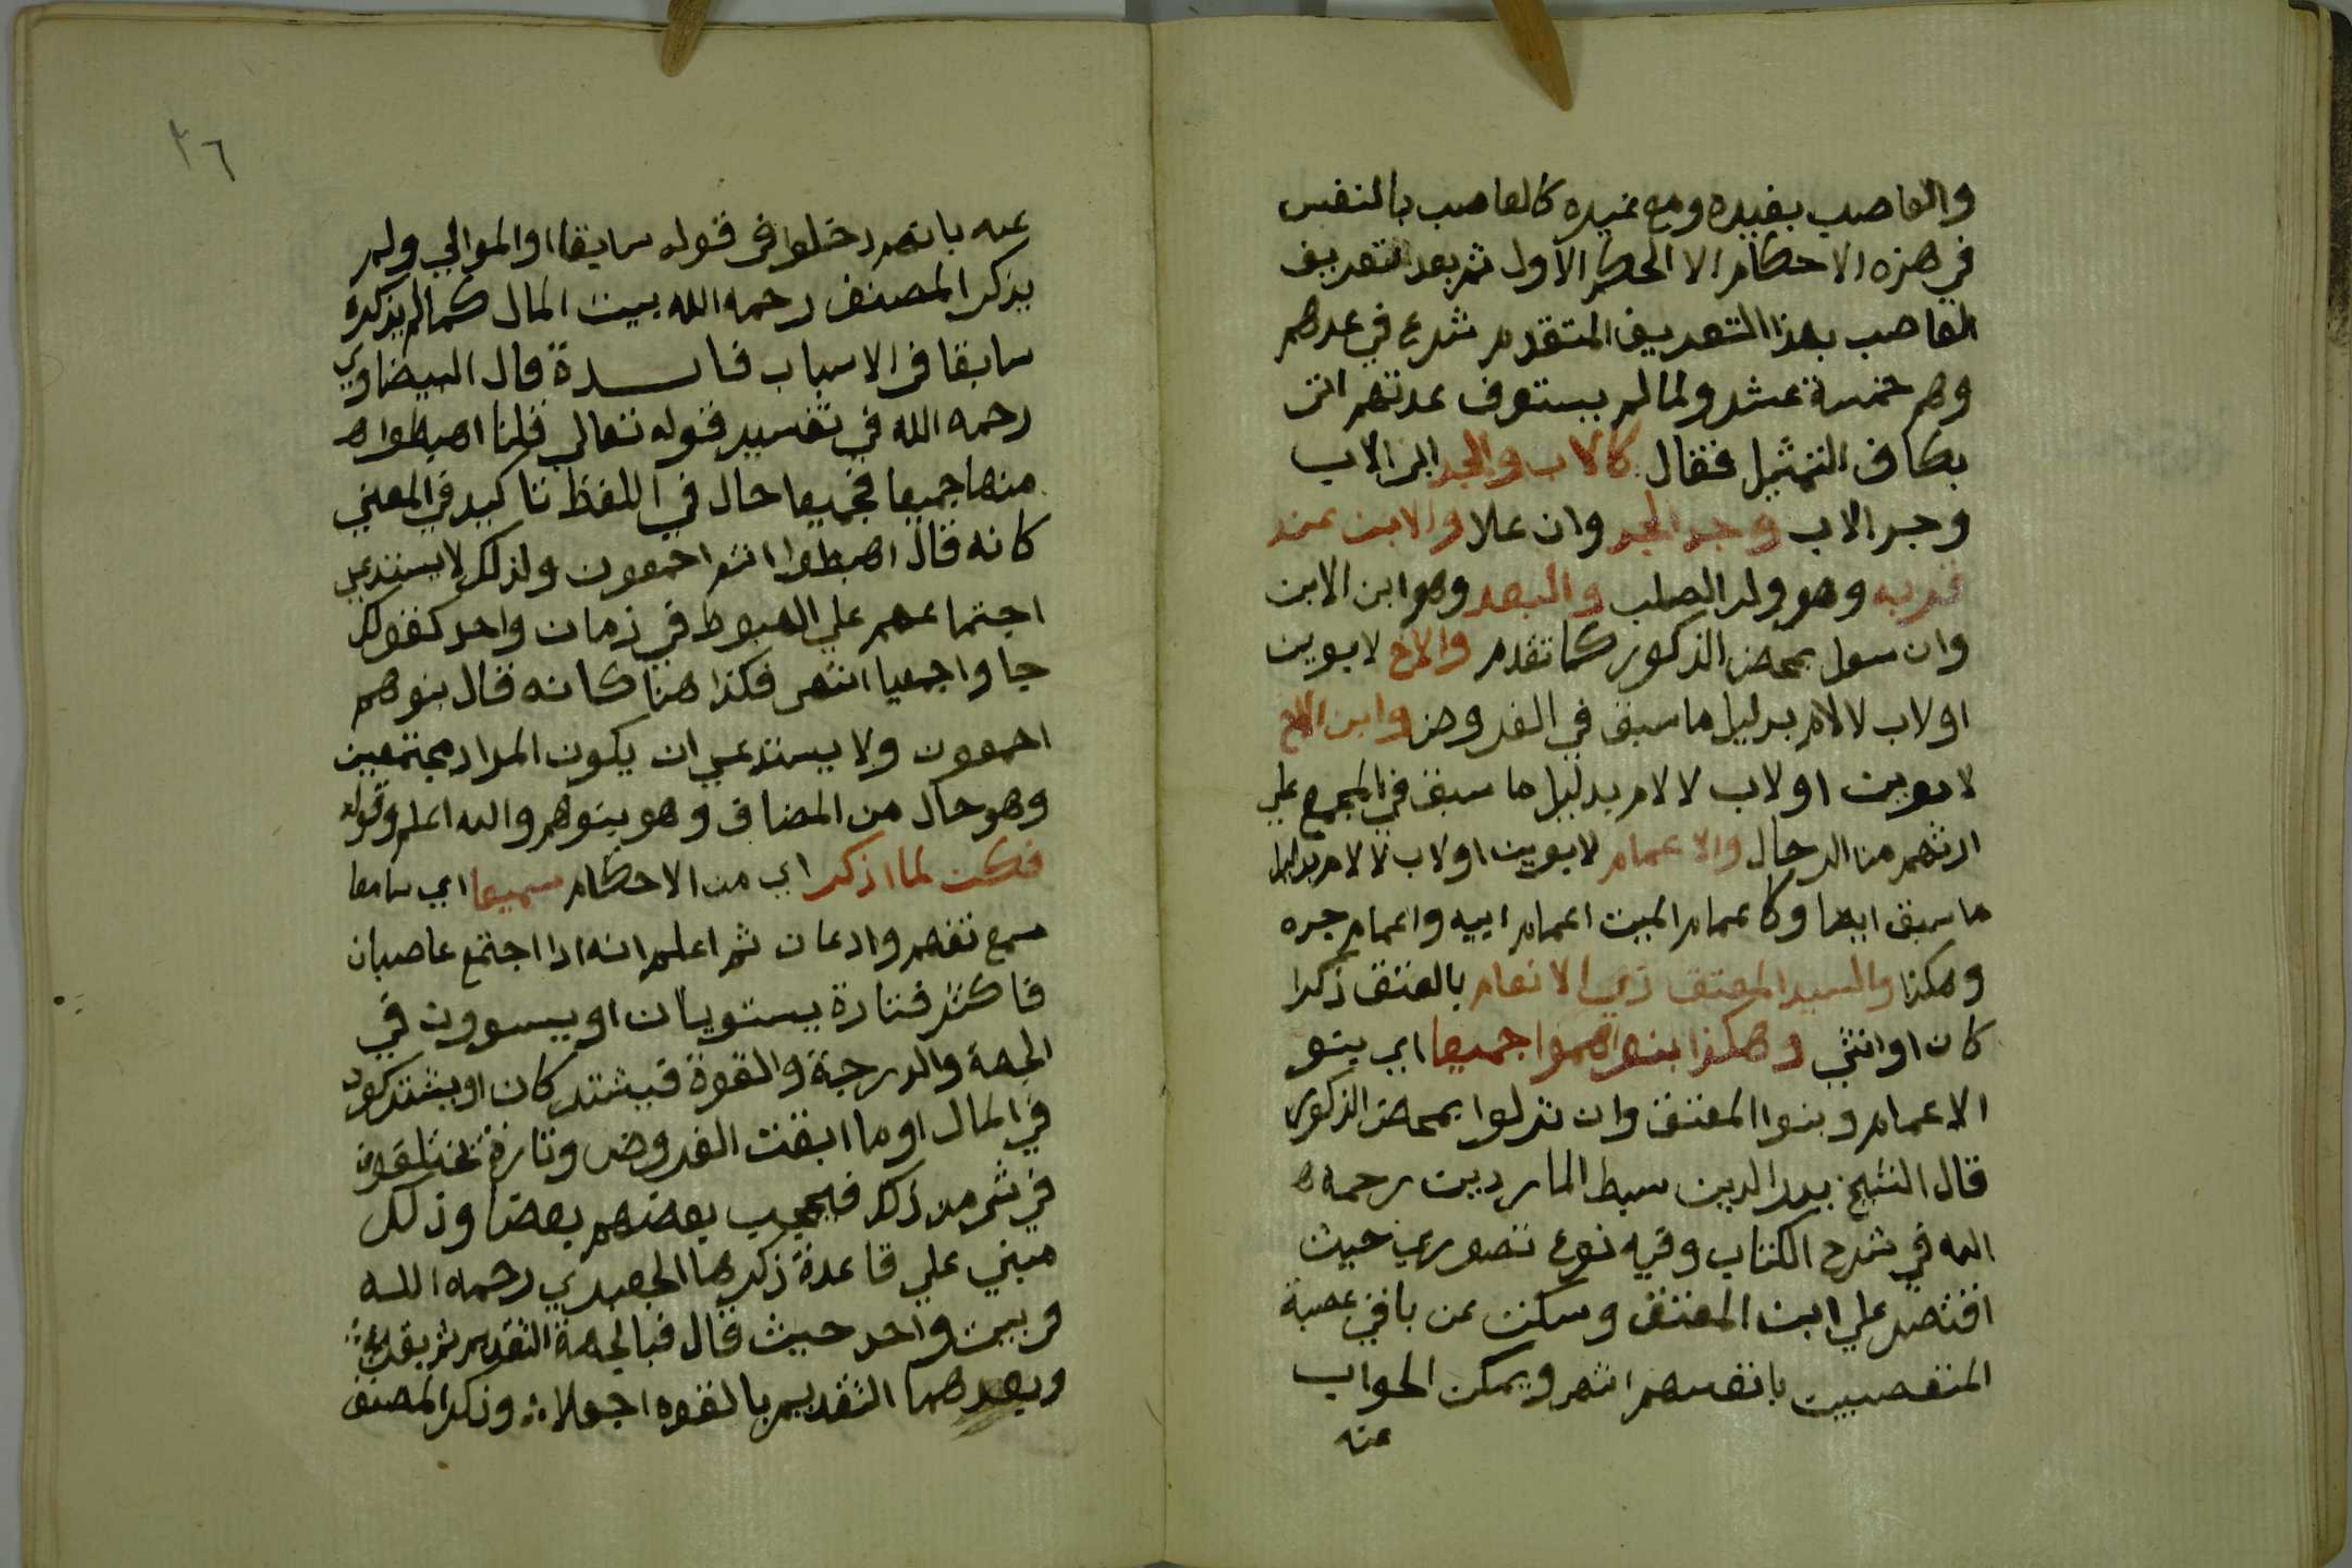 والعاصب بغيره ومع غيره كالعاصب بالنفس
في هذه الاحكام الا الحكم الاول ثم بعد التعريف
العاصب بهذا التعريف المتقدم شرع في عدهم
وهم خمسة عشر ولما لم يستوف عدتهم اتى
بكاف التمثيل فقال كالاب والجد ابى الاب
وجد الاب وجد الجد وان علا والابن عند
قربه وهو ولد الصلب والبعد وهو ابن الابن
وان سفل بمحض الذكور كما تقدم والاخ لابوين
اولاب لالام بدليل ما سبق في الفروض وابن الاخ
لابوين اولاب لالام بدليل ما سبق في المجمع علي
ارثهم من الرجال والاعمام لابوين اولاب لالام بدليل
ما سبق ايضا وكاعمام الميت اعمام ابيه واعمام جده
وهكذا والسيد المعتق ذي الانعام بالعتق ذكرا
كان او انثي وهكذا بنواهموا جميعا اي بنو
الاعمام وبنوا المعتق وان نزلوا بمحض الذكور
قال الشيخ بدر الدين سبط الماردين رحمه
الله في شرح الكتاب وفيه نوع تصوري حيث
اقتصر علي ابن المعتق وسكت عن باقي عصبة
المتعصبين بانفسهم انتهى ويمكن الجواب
عنه
٣٦
عنه بانهم دخلوا في قوله سابقا او الموالي ولم
يذكر المصنف رحمه الله بيت المال كما لم يذكره
سابقا في الاسباب فايدة قال البيضاوي
رحمه الله في تفسير قوله تعالي قلنا اهبطوا
منها جميعا فجميعا حال في اللفظ تاكيد في المعني
كانه قال اهبطوا انتم اجمعون ولذلك لا يستدعي
اجتماعهم علي الهبوط في زمان واحد كقولك
جاوا جميعا انتهى فكذا هنا كانه قال بنوهم
اجمعون ولا يستدعي ان يكون المراد مجتمعين
وهو حال من المضاف وهو بنوهم والله اعلم وقوله
فكن لما اذكر اي من الاحكام سميعا اي سامعا
سمع تفهم واذعان ثم اعلم انه اذا اجتمع عاصبان
فاكثر فتارة يستويان او يستوون في
الجهة والدرجة والقوة فيشتركان او يشتركون
في المال او ما ابقت الفروض وتارة يختلفون
في شي من ذلك فيحجب بعضهم بعضا وذلك
مبني علي قاعدة ذكرها الجعبري رحمه الله
في بيت واحد حيث قال فبالجهة التقديم ثم بقربه
وبعدهما التقديم بالقوة اجعلا وذكر المصنف